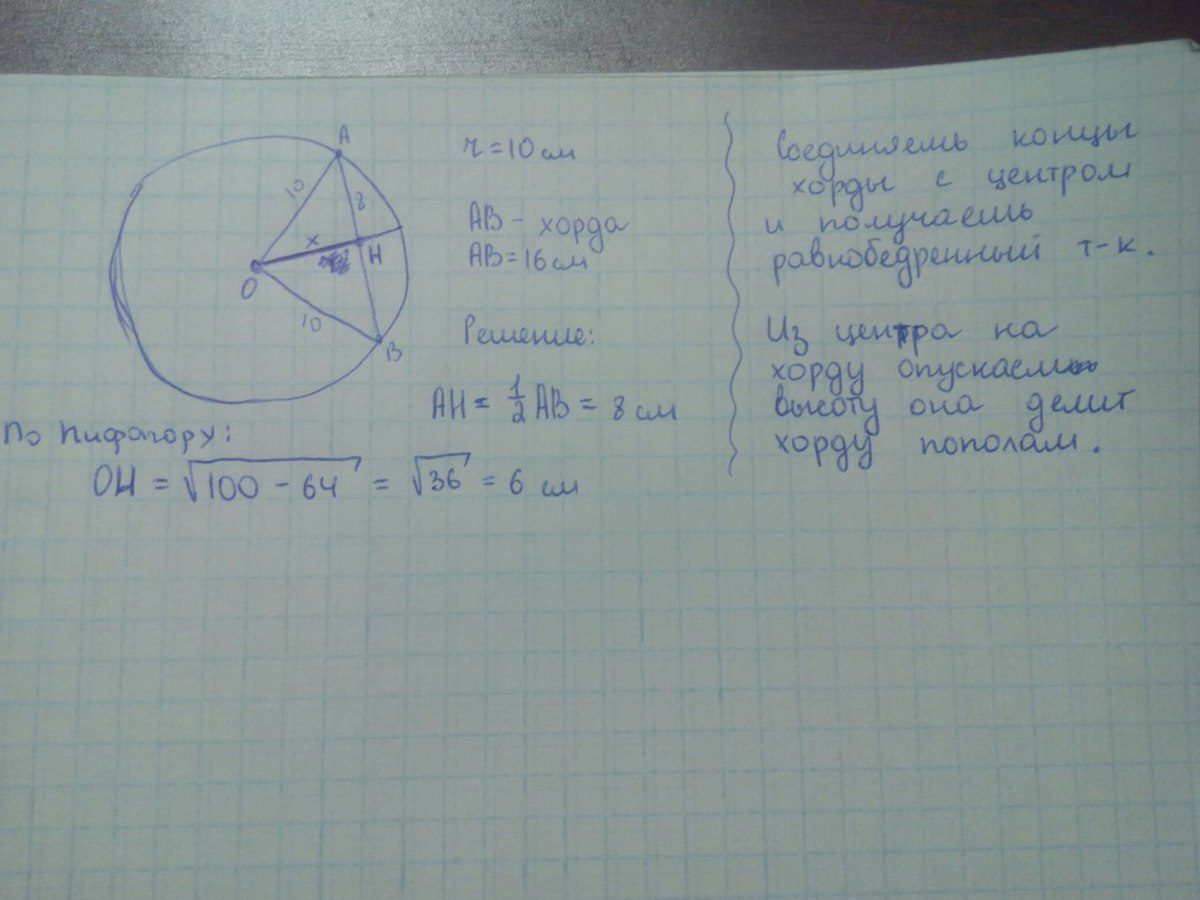 A
10
8
x
H
O
10
B
r = 10 см
AB – хорда
AB = 16 см
Решение:
AH = 1/2 AB = 8 см
По Пифагору:
OH = √100 – 64 = √36 = 6 см
Соединяешь концы
хорды с центром
и получаешь
равнобедренный т-к.
Из центра на
хорду опускаем
высоту она делит
хорду пополам.